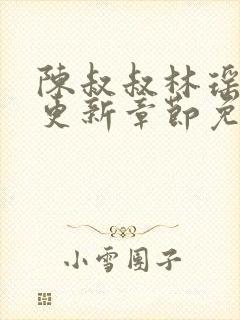 陳叔叔林瑶
更新章節免
小雪團子